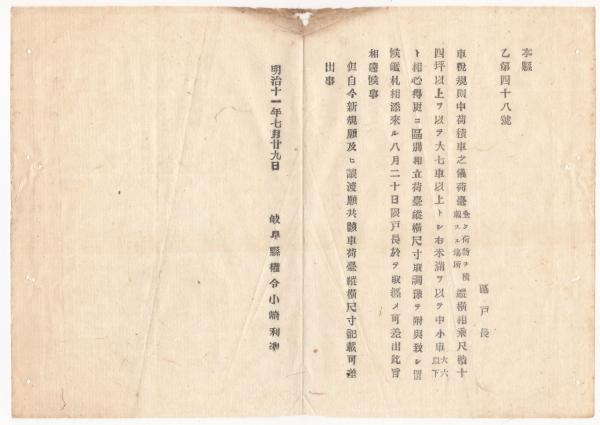 本縣
乙第四十八號
區戸長
車税規則中荷積車之儀荷臺全ク荷物ヲ積載スル塲所縱横相乗尺積十
四坪以上ヲ以テ大七車以上トシ右未滿ヲ以テ中小車大六以下
ト相心得更ニ區別相立荷臺縱横尺寸取調錄ヲ附與致シ置
候鑑札相添來ル八月二十日限戸長於テ取纒メ可差出此旨
相達候事
但自今新規願及ヒ讓渡願共該車荷臺縱横尺寸記載可差
出事
明治十一年七月廿九日
岐阜縣權令小崎利凖